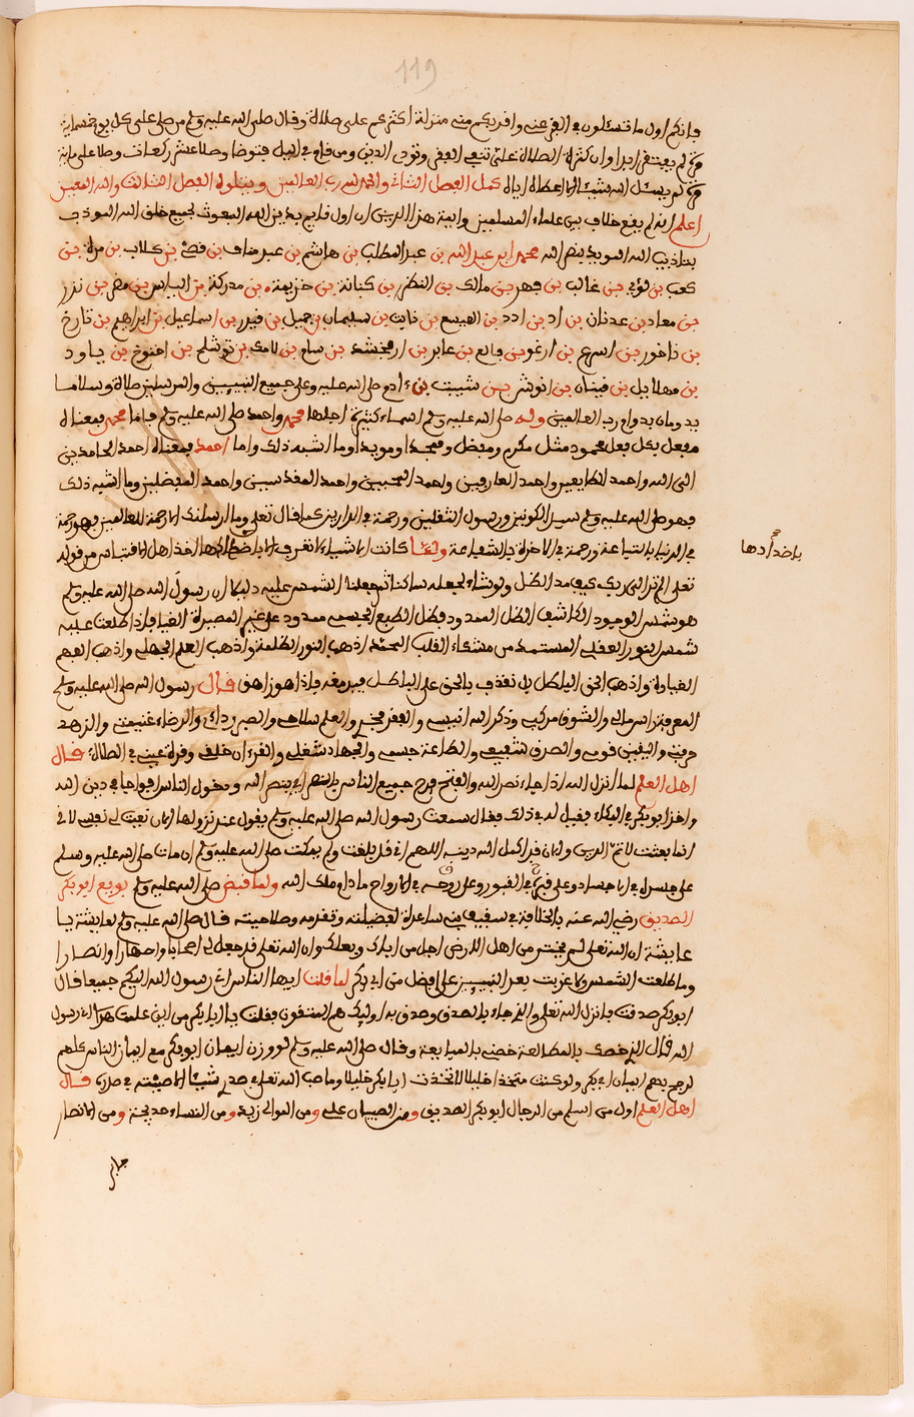 119
فانكم اول ما تسئلون في القبر عني واقربكم مني منزلة اكثركم علي صلاة وقال صلى الله عليه وسلم من صلى علي كل يوم خمسماية
مرة لم يفتقر ابدا وان كثرة الصلاة علي تنفي الفقر ومن قام في الليل فتوضا وصلا عشر ركعات وصلا علي ماية
مرة لم يسئل الله شيئا الا اعطاه اياه كمل الفصل الثاني والحمد لله رب العالمين ويتلوه الفصل الثالث والله المعين
اعلم انه لم يقع خلاف بين علماء المسلمين وايمة هذا الدين ان اول قايم بدين الله المبعوث لجميع خلق الله المودب
بتاديب الله المويد بنصر الله محمد ابن عبد الله بن عبد المطلب بن هاشم بن عبد مناف بن قصي بن كلاب بن مرة بن
كعب بن لؤي بن غالب بن فهر بن مالك بن النضر بن كنانة بن خزيمة بن مدركة بن الياس بن مضر بن نزار
بن معاد بن عدنان بن اد بن ادد بن الهميسع بن نابت بن سليمان بن حميل بن قيدر بن اسماعيل بن ابراهيم بن تارخ
بن ناخور بن اسرع بن ارغو بن فالع بن عابر بن ارفخشد بن سام بن لامك بن توشلح بن اخنوخ بن ياود
بن مهلاييل بن قينان بن انوش بن شيت بن ءادم صلى الله عليه وعلى جميع النبيين والمرسلين صلاة وسلاما
يدومان بدوام رب العالمين وله صلى الله عليه وسلم اسماء كثيرة اجلها محمد واحمد صلى الله عليه وسلم فاما محمد فمعناه
مفعل بكل فعل محمود مثل مكرم ومفضل وممجد ومويد وما اشبه ذلك واما احمد فمعناه احمد الحامدين
الى الله واحمد الطايعين واحمد العارفين واحمد المحبين واحمد المقدسين واحمد المفضلين وما اشبه ذلك
فهو صلى الله عليه وسلم سيد الكونين ورسول الثقلين ورحمة في الدارين كما قال تعلى وما ارسلنك الا رحمة للعالمين فهو رحمة
في الدنيا بالتباعة ورحمة في الاخرة بالشفاعة ولما كانت الاشياء لا تعرف الا باضدادها اهل الاقتباس من قوله
باضدادها
تعلى الم تر الى ربك كيف مد الظل ولو شاء لجعله ساكنا ثم جعلنا الشمس عليه دليلا ان رسول الله صلى الله عليه وسلم
هو شمس الوجود الكاشف الظل الممدود فظل الطبع الحسي ممدود على المصيراة الغيا فاذا طلعت عليه
شمس النور العقلي المستمد من القلب اذهب النور الظلمة واذهب العلم الجهل واذهب الفهم
الغباوة واذهب الحق الباطل بل نقذف بالحق على الباطل فيدمغه فاذا هو زاهق قال رسول الله صلى الله عليه وسلم
المعرفة راس مالي والشوق مركبي وذكر الله انيسي والفقر فخري والعلم سلاحي والصبر ردائي والرضاء غنيمتي والزهد
حرفتي واليقين قوتي والصدق شفيعي والطاعة حسبي والجهاد شغلي والقرءان خلقي وقرة عيني في الصلاة قال
اهل العلم لما انزل الله اذا جاء نصر الله والفتح فرح جميع الناس بالنصر اي بنصر الله ودخول الناس افواجا في دين الله
واخذ ابو بكر في البكاء فقيل له في ذلك فقال سمعت رسول الله صلى الله عليه وسلم يقول عند نزولها الان نعيت لي نفسي لاني
انما بعثت لاتم الدين والان قد اكمل الله دينه اللهم اني قد بلغت ولم يمكث صلى الله عليه وسلم ان مات صلى الله عليه وسلم
على جسده في الاجساد وعلى قبره في القبور وعلى روحه في الارواح ما دام ملك الله ولما قبض صلى الله عليه وسلم بويع ابو بكر
الصديق رضي الله عنه بالخلافة في سقيفة بني ساعدة لفضيلته وتقدمه وصلاحيته قال صلى الله عليه وسلم لعايشة يا
عايشة ان الله تعلى لم يخترني من اهل الارض اجل من ابيك وبعلك وان الله تعلى قد جعل لي اصحابا واصهارا وانصارا
وما طلعت الشمس ولا غربت بعد النبيين على افضل من ابي بكر لما قلت ايها الناس اني رسول الله اليكم جميعا قال
ابو بكر صدقت فانزل الله تعلى والذي جاء بالصدق وصدق به اوليك هم المتقون فقلت يا ابا بكر من اين علمت هذا اني رسول
الله قال الذي خصك بالمطالعة خصني بالمبايعة وقال صلى الله عليه وسلم لو وزن ايمان ابو بكر مع ايمان الناس كلهم
لرجح بهم ايمان ابي بكر ولو كنت متخذا خليلا لاتخذت ابا بكر خليلا وما صب الله تعلى في صدري شيئا الا صببته في صدره قال
اهل العلم اول من اسلم من الرجال ابو بكر الصديق ومن الصبيان علي ومن الموالي زيد ومن النساء خديجة ومن الانصار
جابر